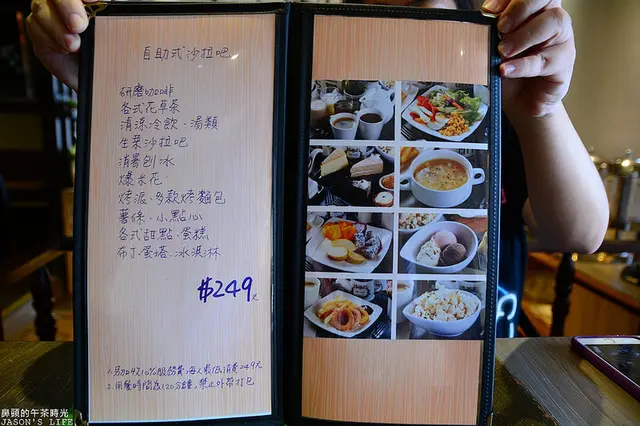 自助式沙拉吧
研磨咖啡
各式花草茶
清涼冷飲．湯類
生菜沙拉吧
消暑刨冰
爆米花
烤派．多款烤麵包
薯條．小點心
各式甜點．蛋糕
布丁．蛋塔．冰淇淋
$249元
1.另加收10%服務費，每人最低消費249元
2.用餐時間為120分鐘，禁止外帶打包
鼻頭的午茶時光
JASON'S LIFE